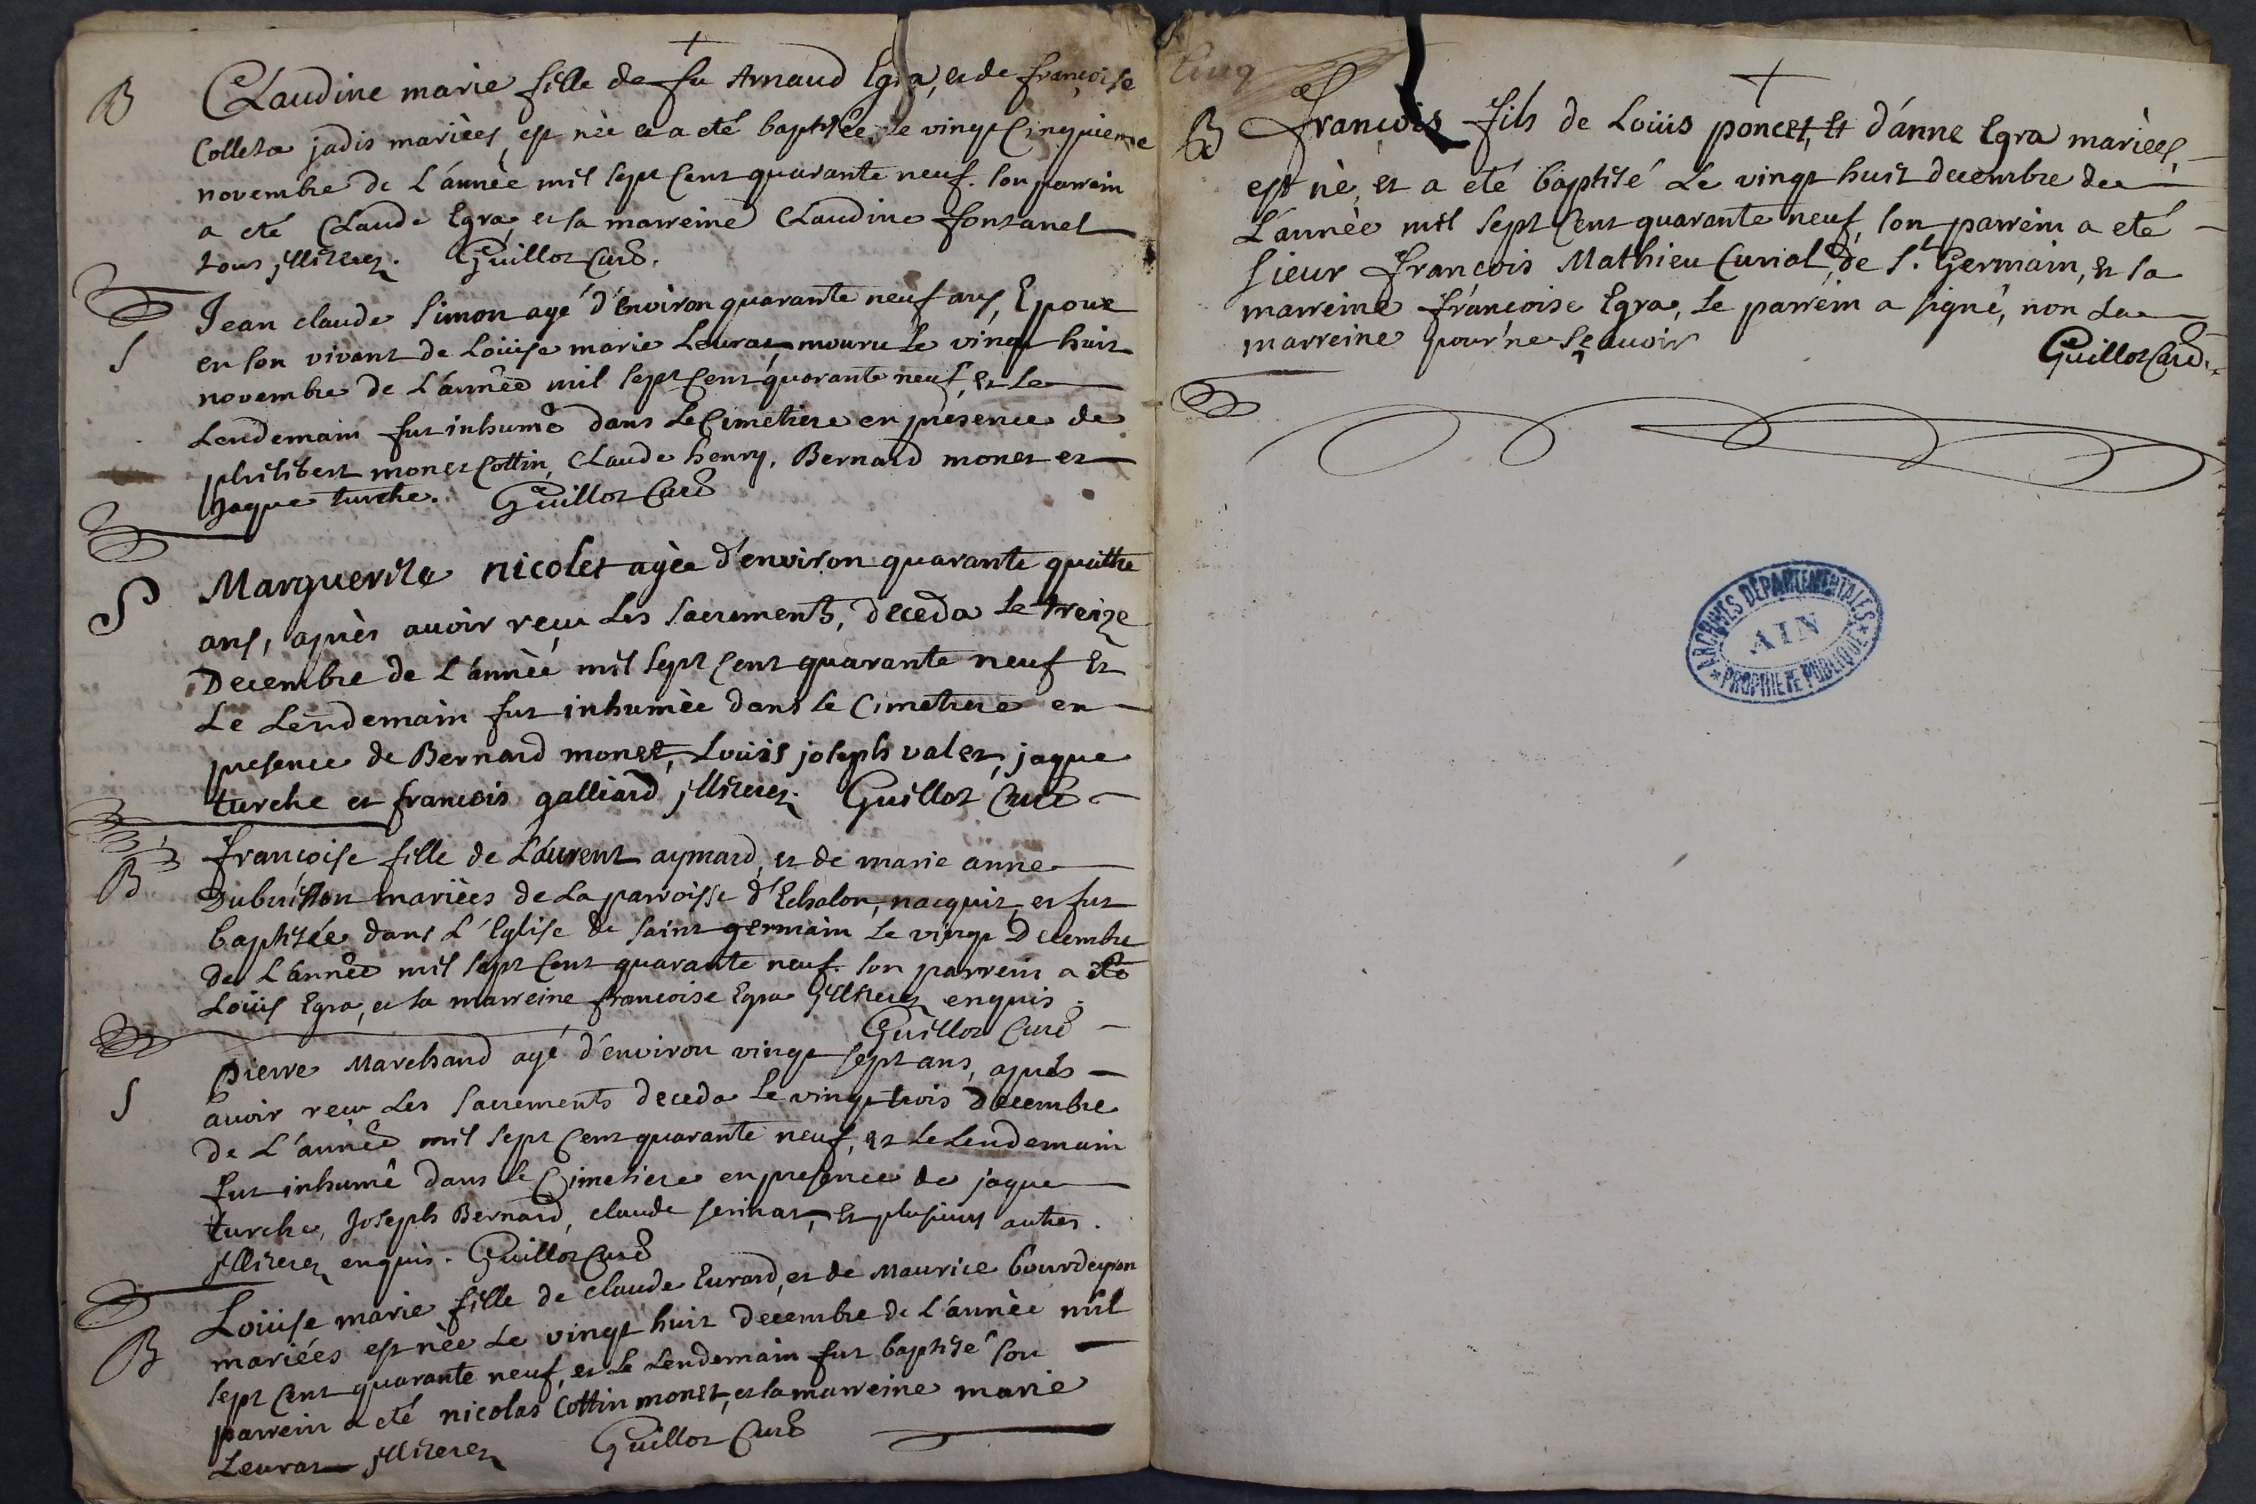 B
Claudine marie fille de fu Arnaud Egra, et de françoise
Colleta jadis mariées, est née et a eté baptisée, le vingt Cinquieme
novembre de L'année mil sept Cent quarante neuf. son parrein
a eté Claude Egra, et sa marreine Claudine fontanel
tous illiterez. Guillot Curé.
S
Jean claude Simon agé d'Environ quarante neuf ans, Epoux
en son vivant de Loüise marie Leurat, mouru Le vingt huit
novembre de L'année mil sept Cent quarante neuf, et Le
Lendemain fut inhumé dans Le Cimetiere en presence de
philibert monet Cottin, Claude henry, Bernard monet et
Jaque turche. Guillot Curé
S
Marguerite nicolet agée d'environ quarante quattre
ans, après avoir reçu Les Sacrements, deceda Le treize
Decembre de L'année mil sept Cent quarante neuf Et
Le Lendemain fut inhumée dans Le Cimetiere en
presence de Bernard monet, Louis joseph valet, jaque
turche et francois galliard illiterez. Guillot Curé
B
françoise fille de Laurent aymard, et de marie anne
Dubuisson mariées de La parroisse d'Echalon, nacquit, et fut
baptisée dans L'Eglise de saint germain Le vingt Decembre
de L'année mil sept Cent quarante neuf. son parrein a eté
Loüis Egra, et sa marreine francoise Egra illiterez enquis.
Guillot Curé
S
Pierre Marchand agé d'environ vingt sept ans, après
avoir reçu Les Sacrements deceda Le vingt trois Decembre
de L'année mil sept Cent quarante neuf, et Le Lendemain
fut inhumé dans le Cimetiere en presence de jaque
turche, Joseph Bernard, claude , Et plusieurs autres.
illiterez enquis. Guillot Curé
B
Loüise marie fille de claude Eurard, et de Maurice bourdeyron
mariées est née Le vingt huit Decembre de L'année mil
sept Cent quarante neuf, et Le Lendemain fut baptisé son
parrein a eté nicolas Cottin monet, et la marreine marie
Leurat illiterez Guillot Curé
Cinq
B
François fils de Loüis poncet, Et d'anne Egra mariées,
est né, et a eté baptisé Le vingt huit decembre de
L'année mil sept Cent quarante neuf, son parrein a eté
sieur francois Mathieu Curial, de St. Germain, Et sa
marreine françoise Egra, Le parrein a signé, non La
marreine pour ne sçavoir
Guillot Curé.
ARCHIVES DÉPARTEMENTALES
AIN
PROPRIÉTÉ PUBLIQUE